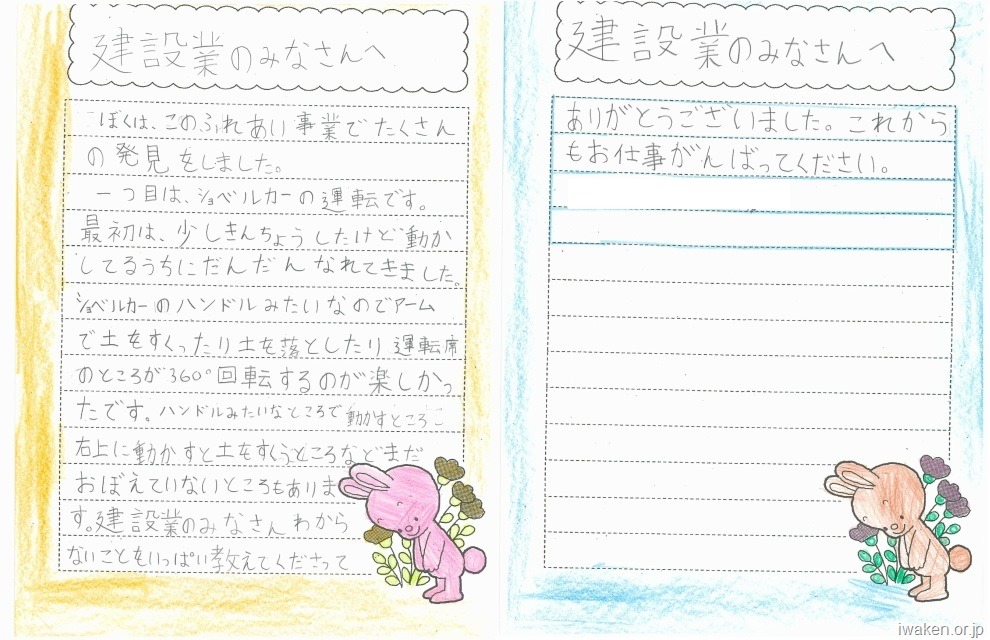 建設業のみなさんへ
ぼくは、このふれあい事業でたくさん
の発見をしました。
一つ目は、ショベルカーの運転です。
最初は、少しきんちょうしたけど動か
してるうちにだんだんなれてきました。
ショベルカーのハンドルみたいなのでアーム
で土をすくったり土を落としたり運転席
のところが360°回転するのが楽しかっ
たです。ハンドルみたいなところで動かすところこ
右上に動かすと土をすくうところなどまだ
おぼえていないところもありま
す。建設業のみなさんわから
ないこともいっぱい教えてくださって
建設業のみなさんへ
ありがとうございました。これから
もお仕事がんばってください。
iwaken.or.jp